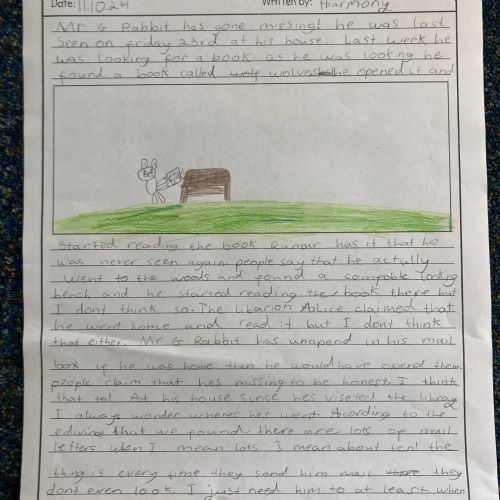 Date: 11.10.24 Written by: Harmony
Mr G Rabbit has gone missing! he was last
seen on friday 23rd at his house. Last week he
was looking for a book as he was looking he
found a book called wolves he opened it and
Started reading the book Rumur has it that he
was never seen again. people say that he actully
went to the woods and found a comfoble looking
bench and he started reading the book there but
I dont think so. The libarion Alice claimed that
he went home and read it but I dont think
that either. Mr G Rabbit has unopend in his mail
box if he was home then he would have opend them.
people claim that hes missing to be honest I think
that to! At his house since hes viseted the library
I always wonder wheres he's went. Acording to the
edivine that we found. there are lots of mail
letters when I mean lots I mean about ten! the
thing is every time they send him mail they
dont even look. I just need him to at least when